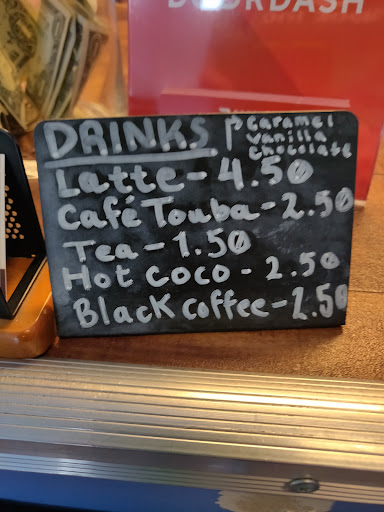 DOORDASH
DRINKS
Caramel
Vanilla
Chocolate
Latte - 4.50
Café Touba - 2.50
Tea - 1.50
Hot Coco - 2.50
Black Coffee - 2.50